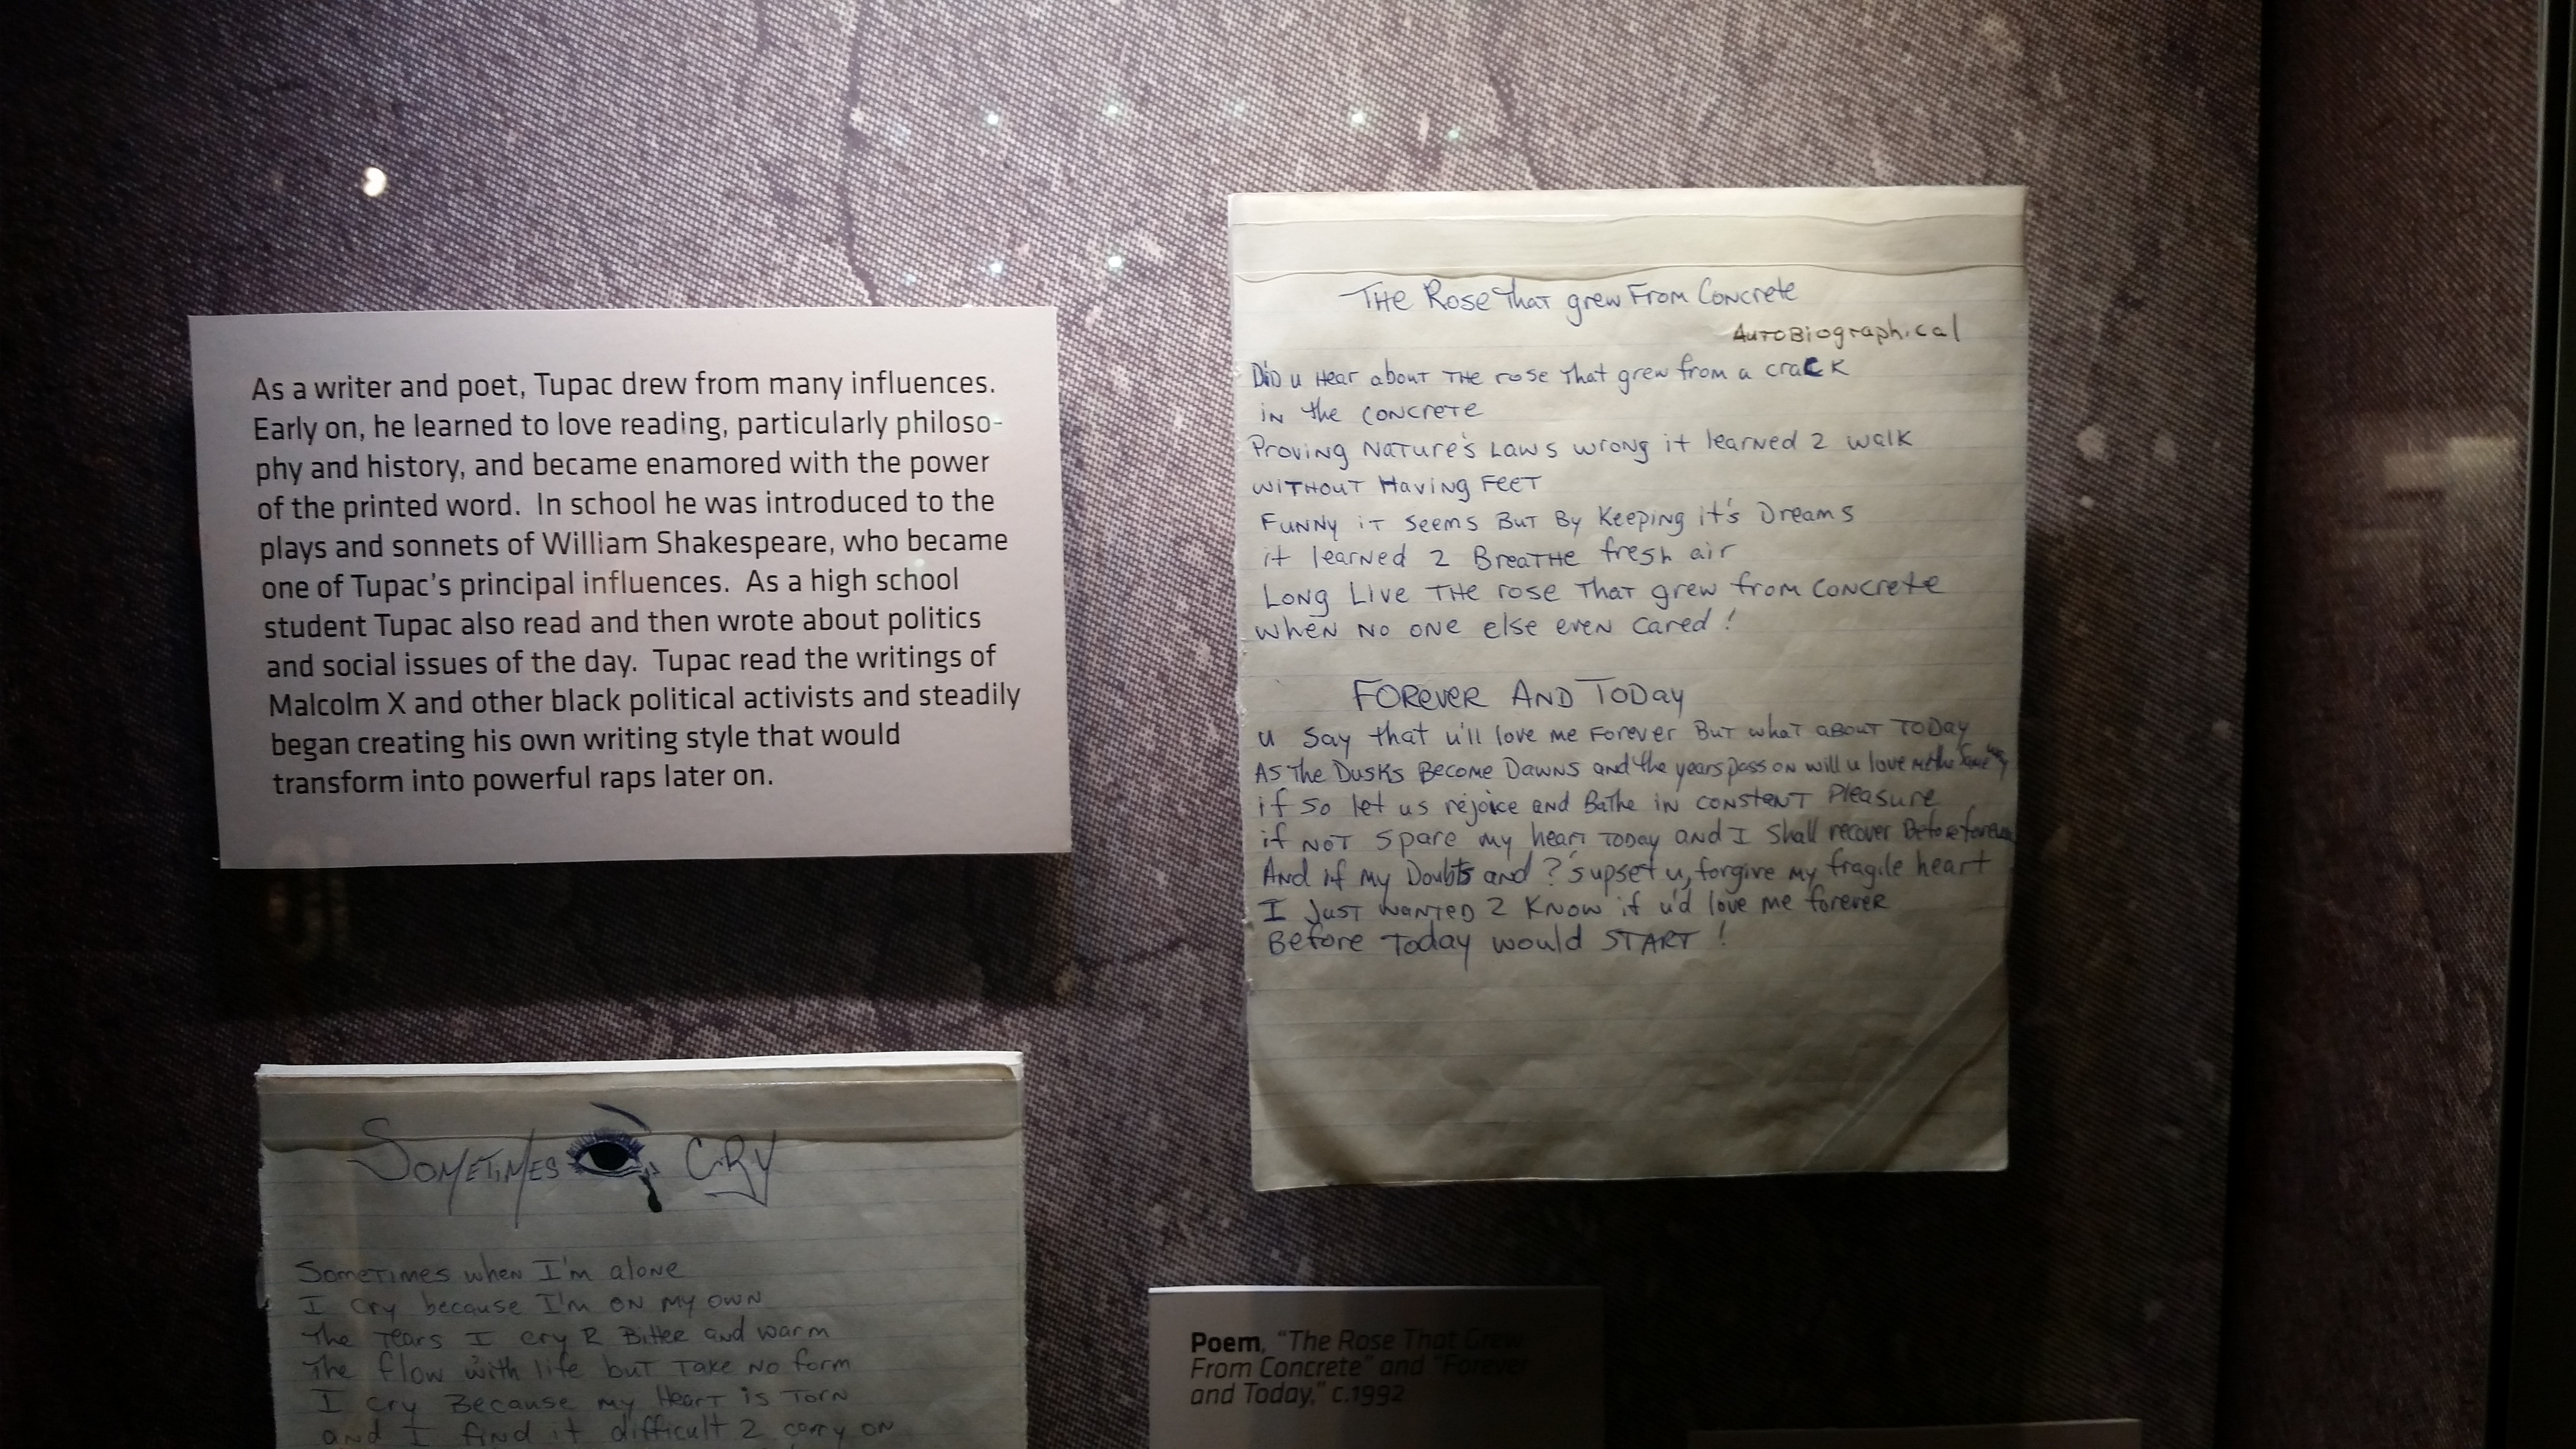 As a writer and poet, Tupac drew from many influences.
Early on, he learned to love reading, particularly philoso-
phy and history, and became enamored with the power
of the printed word. In school he was introduced to the
plays and sonnets of William Shakespeare, who became
one of Tupac's principal influences. As a high school
student Tupac also read and then wrote about politics
and social issues of the day. Tupac read the writings of
Malcolm X and other black political activists and steadily
began creating his own writing style that would
transform into powerful raps later on.
THE Rose That grew From Concrete
AutoBiographical
DiD u Hear about THE rose That grew from a craCK
in the CONCRETE
Proving Nature's Laws wrong it learned 2 walk
WITHOUT Having FEET
FUNNY iT Seems But By Keeping it's Dreams
it learned 2 BreaTHe fresh air
LONG LIVE THE rose THAT grew from CONCrete
WHEN NO ONE else even cared!
FOREVER AND TODAY
u say that u'll love me Forever But what aBOUT TODay
AS The Dusks Become Dawns and the years pass on will u love me the same way
if so let us rejoice and BaThe in constant Pleasure
if NOT spare my heart TODAY and I shall recover Before forever
And if my Doubts and ?'s upset u, forgive my fragile heart
I Just wanted 2 Know if u'd love me forever
Before Today would START!
SOMETIMES CRY
Sometimes when I'm alone
I Cry because I'm on my own
The Tears I cry R Bitter and warm
The flow with life but Take No form
I Cry Because my Heart is TORN
and I find it difficult 2 carry on
Poem, "The Rose That Grew
From Concrete" and "Forever
and Today," c.1992